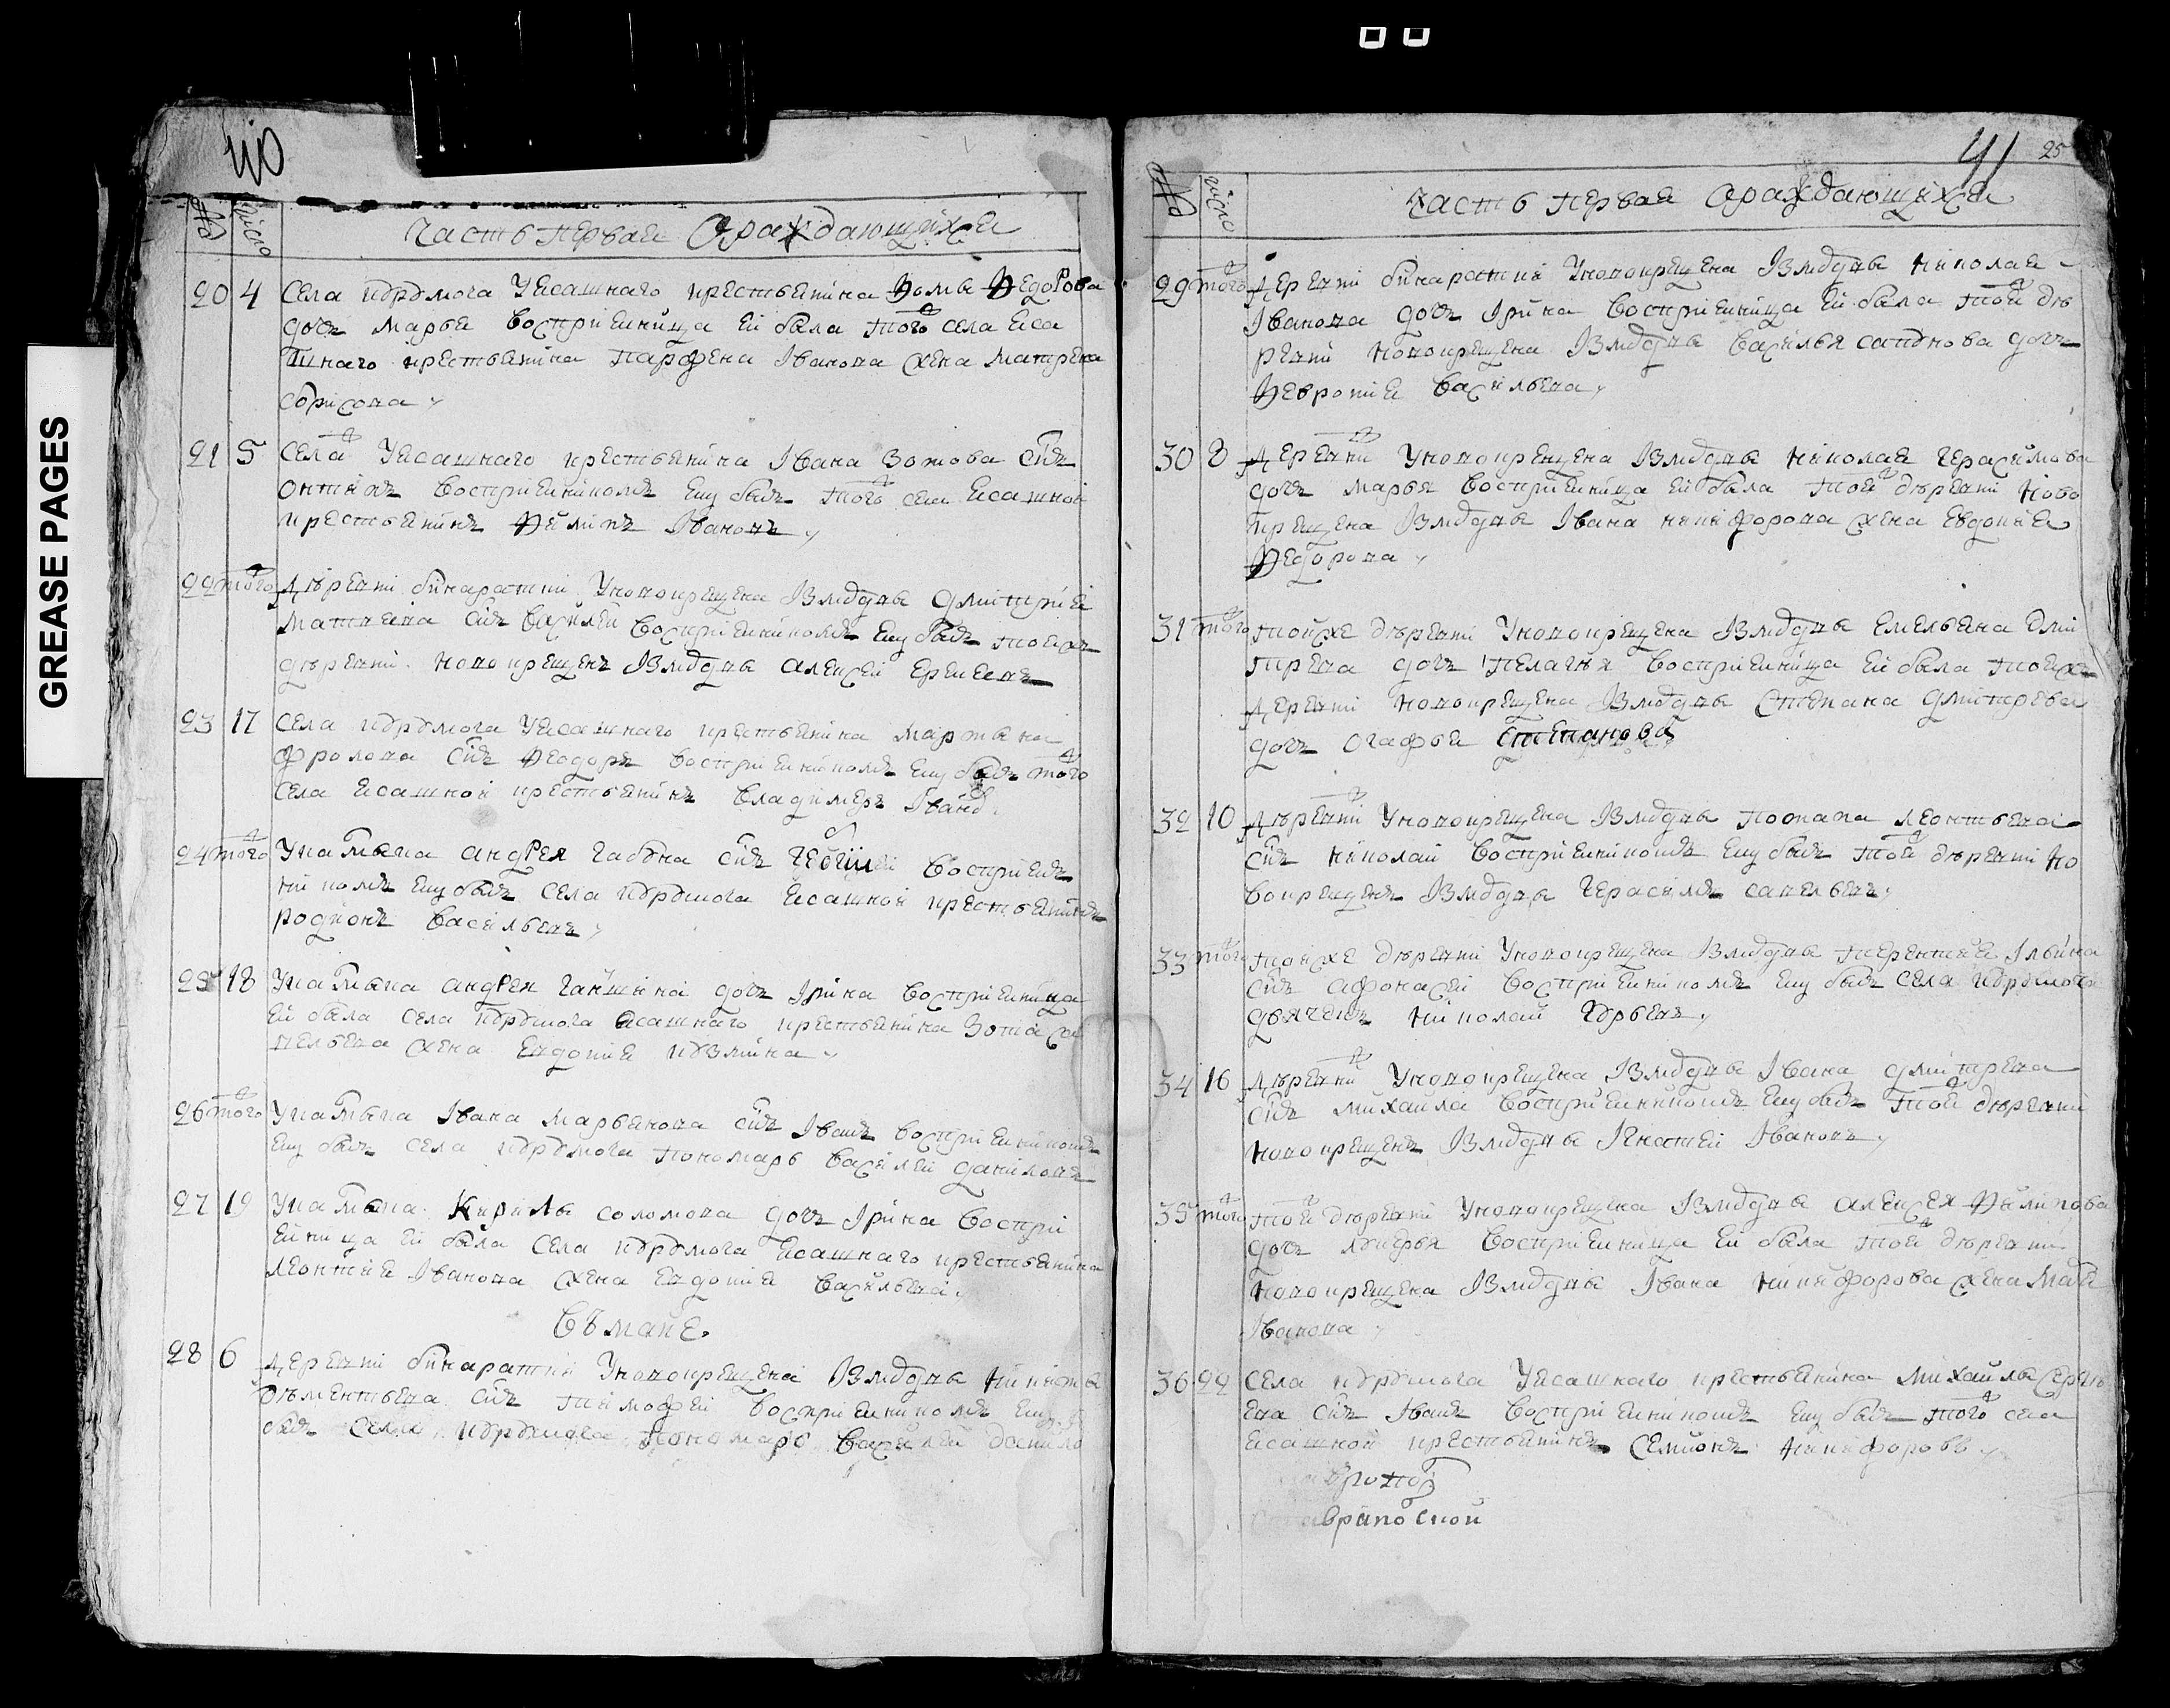 GREASE PAGES
40
№ число Часть первая О раждающихся
20 4 Села Курумоча У ясашнаго крестьянина Фомы Федорова
дочь Марья восприемница ей была того села яса
шнаго крестьянина Парфена Иванова жена Матрена
Борисова
21 5 Села У ясашнаго крестьянина Ивана Зотова снъ
восприемникомъ ему былъ того села ясашной
крестьянинъ Филипъ Ивановъ
22 того Дѣревни У новокрещена Измордвы Дмитрия
Матвеива снъ Василей восприемникомъ ему былъ тоеже
дѣревни новокрещенъ Измордвы Алексей Еремеевъ
23 17 Села Курумоча У ясашнаго крестьянина Мартына
Фролова снъ Феодоръ восприемникомъ ему былъ того
села ясашной крестьянинъ Владимеръ Ивано
24 того У Андрея снъ восприем
никомъ ему былъ села Курумоча ясашной крестьянинъ
Родионъ Васильевъ
25 18 У Андрея дочь Ирина восприемница
ей была села Курумоча ясашнаго крестьянина Зота Са
вельева жена Евдотия Кузмина
26 того У Ивана Марьянова снъ Иванъ восприемникомъ
ему былъ села Курумоча пономарь Василей Даниловъ
27 19 У Кирилы Соломова дочь Ирина воспри
емница ей была села Курумоча ясашнаго крестьянина
Леонтия Иванова жена Евдотия Васильева
Въ майе.
28 6 Деревни У новокрещена Измордвы Никиты
снъ Тимофей восприемникомъ ему
былъ села Курумоча пономарь Василей Данило
41 25
№ число Часть первая О раждающихся
29 того Деревни У новокрещена Измордвы Николая
Иванова дочь Ирина восприемница ей была той дѣ
ревни новокрещена Измордвы Василья дочь
Февротия Васильева
30 8 Деревни У новокрещена Измордвы Николая Герасимова
дочь Марья восприемница ей была той дѣревни ново
крещена Измордвы Ивана Никифорова жена Евдокия
Федорова
31 того тойже дѣревни У новокрещена Измордвы Емельяна Дми
трева дочь Пелагия восприемница ей была тоеже
деревни новокрещена Измордвы Степана Дмитрева
дочь Огафья Степанова
32 10 Дѣревни У новокрещена Измордвы Потапа Леонтьева
снъ Николай восприемникомъ ему былъ той дѣревни но
вокрещенъ Измордвы Герасимъ Савельевъ
33 того тойже дѣревни У новокрещена Измордвы Терентия Ильина
снъ Афонасей восприемникомъ ему былъ села Курумоча
дьячекъ Николай Гурьевъ
34 16 Дѣревни У новокрещена Измордвы Ивана Дмитрева
снъ Михаила восприемникомъ ему былъ той дѣревни
новокрещенъ Измордвы Игнатей Ивановъ
35 того той дѣревни У новокрещена Измордвы Алексея Филипова
дочь Лукерья восприемница ей была той дѣревни
новокрещена Измордвы Ивана Никифорова жена
Иванова
36 22 Села Курумоча У ясашнаго крестьянина Михайлы Серге
ева снъ Иванъ восприемникомъ ему былъ того села
ясашной крестьянинъ Семионъ Никифоровъ